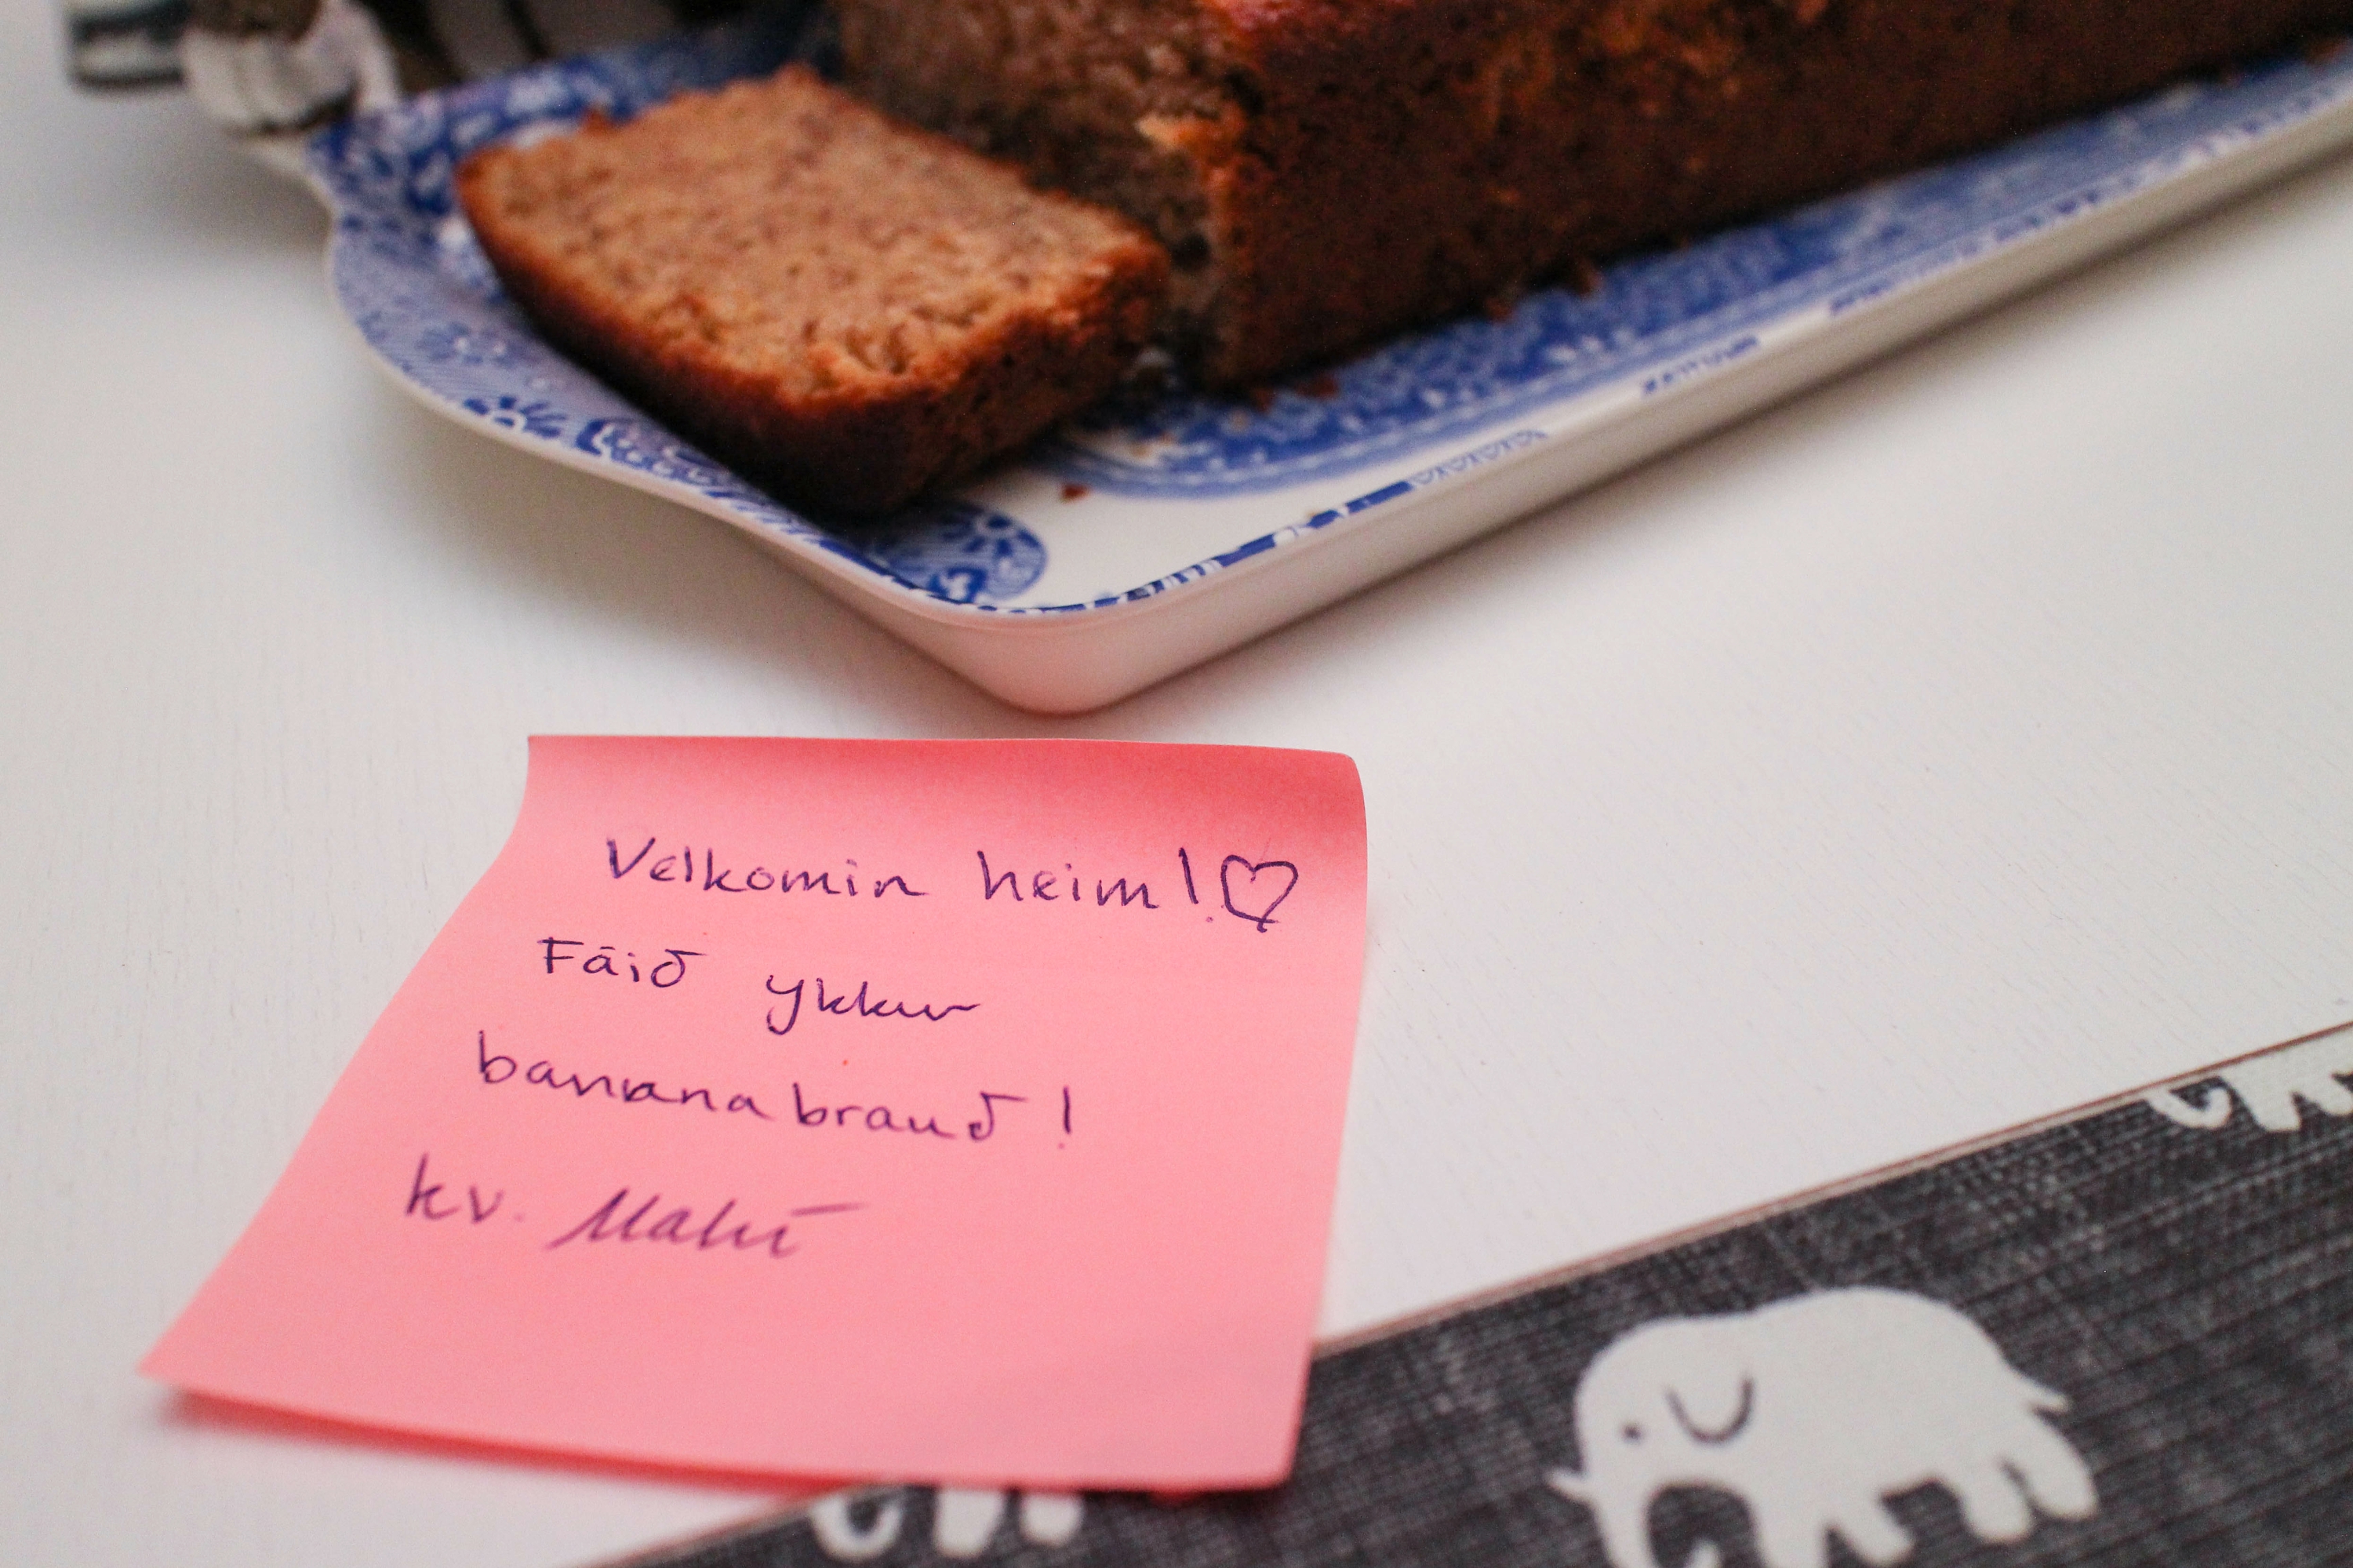 Velkomin heim! ♡
Fáið ykkur
bananabrauð!
kv.